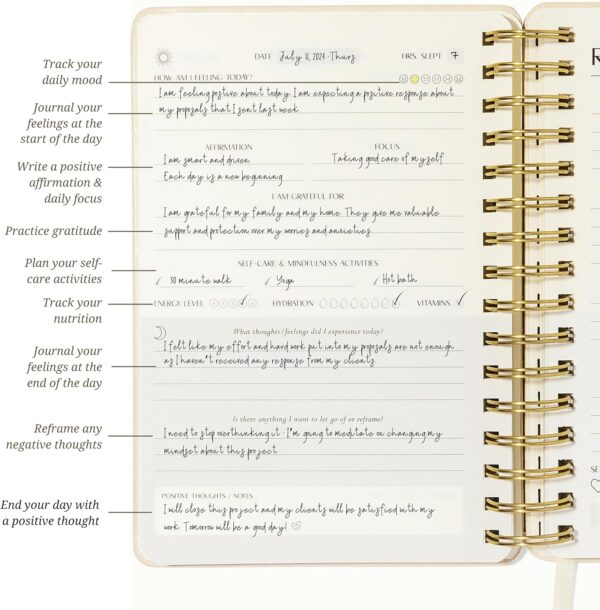 DATE July 11, 2024 · Thurs HRS. SLEPT 7
Track your
daily mood
HOW AM I FEELING TODAY?
Journal your
feelings at the
start of the day
I am feeling postive about today. I am expecting a positive response about
my proposals that I sent last week
Write a positive
affirmation &
daily focus
AFFIRMATION FOCUS
I am smart and driven Taking good care of myself
Each day is a new beginning
I AM GRATEFUL FOR
Practice gratitude
I am grateful for my family and my home. They give me valuable
support and protection over my worries and anxieties
Plan your self-
care activities
SELF-CARE & MINDFULNESS ACTIVITIES
✓ 30 minute walk ✓ Yoga ✓ Hot bath
Track your
nutrition
ENERGY LEVEL 1 2 3 4 5 HYDRATION VITAMINS ✓
Journal your
feelings at the
end of the day
What thoughts/feelings did I experience today?
I felt like my effort and hard work put into my proposals are not enough
as I haven't received any response from my clients
Reframe any
negative thoughts
Is there anything I want to let go of or reframe?
I need to stop overthinking it. I'm going to meditate on changing my
mindset about this project
End your day with
a positive thought
POSITIVE THOUGHTS / NOTES
I will close this project and my clients will be satisfied with my
work. Tomorrow will be a good day!
R
SE